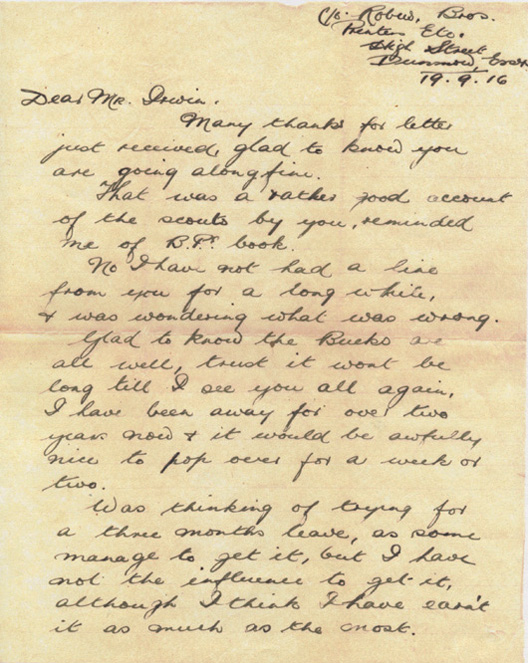 c/o. Robus, Bros.
Printers Etc.
High Street
Dunmow, Essex
19.9.16
Dear Mr. Irwin.
Many thanks for letter
just received, glad to know you
are going along fine.
That was a rather good account
of the scouts by you, reminded
me of B.P's book.
No I have not had a line
from you for a long while,
& was wondering what was wrong.
Glad to know the Bucks are
all well, trust it wont be
long till I see you all again,
I have been away for over two
years now & it would be awfully
nice to pop over for a week or
two.
Was thinking of trying for
a three months leave, as some
manage to get it, but I have
not the influence to get it,
although I think I have earn't
it as much as the most.